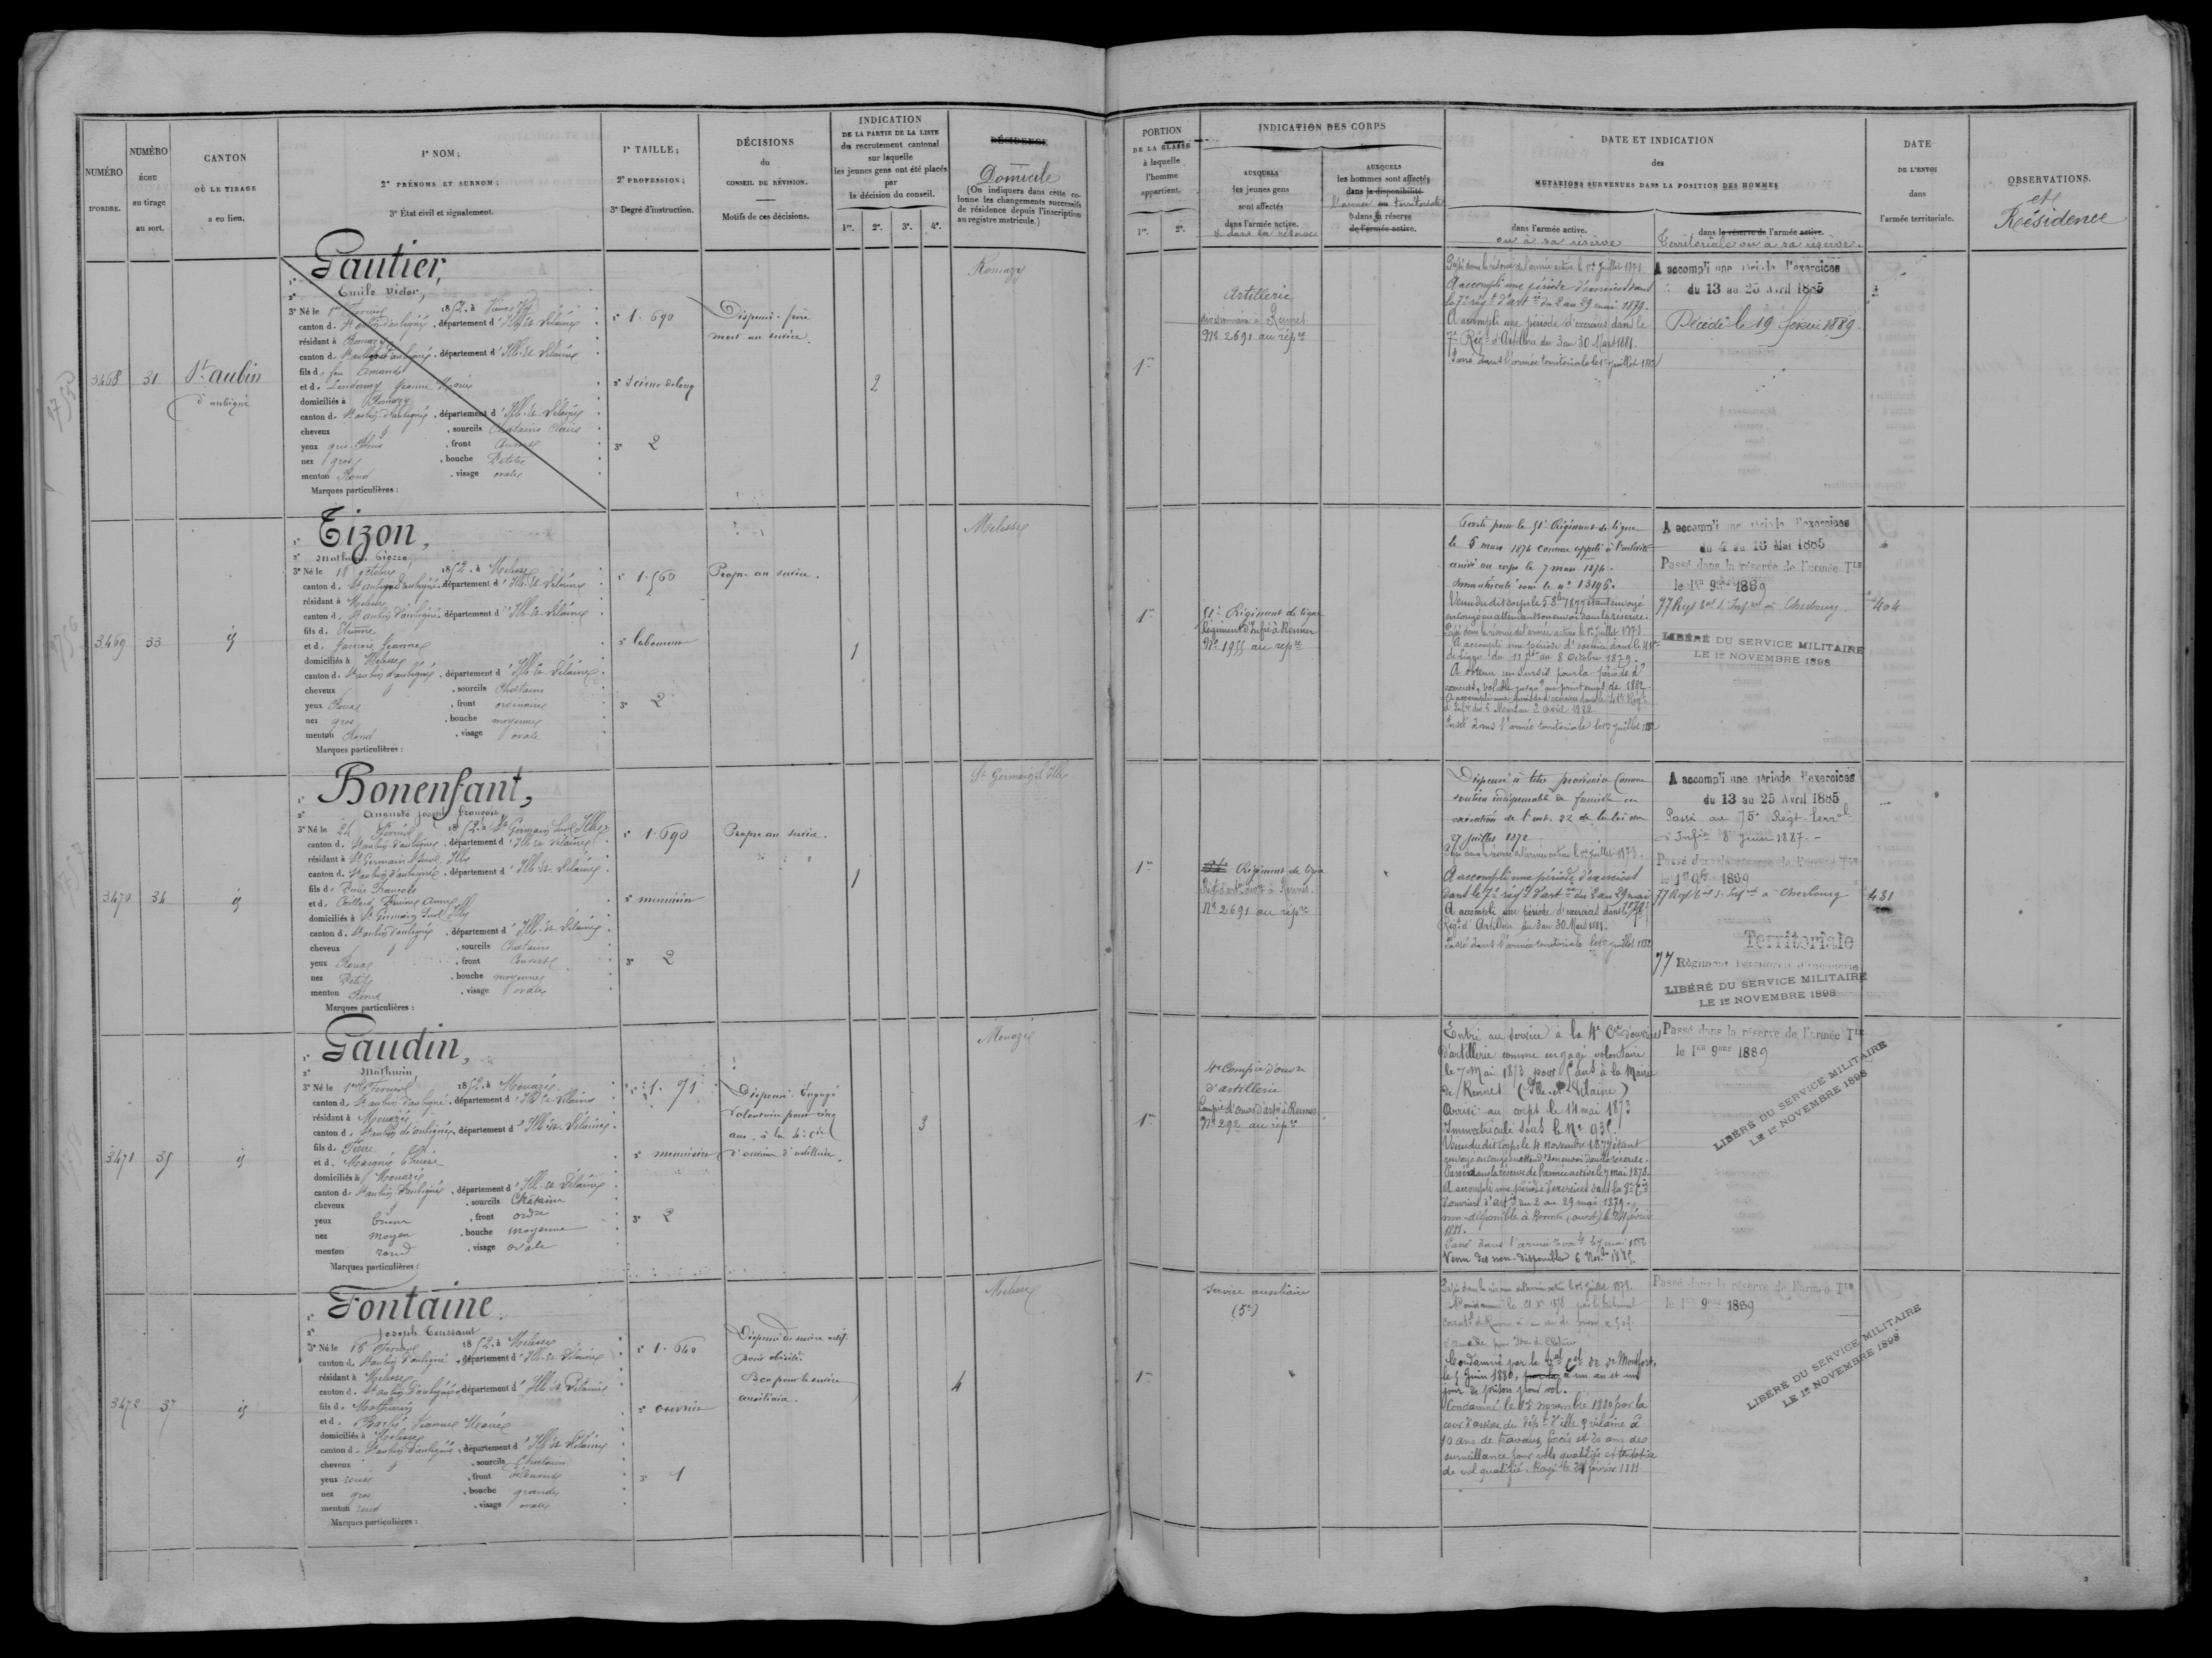 NUMÉRO
D'ORDRE.
NUMÉRO
ÉCHU
au tirage
au sort.
CANTON
OÙ LE TIRAGE
a eu lieu.
1° NOM;
2° PRÉNOMS ET SURNOM;
3° État civil et signalement.
1° TAILLE;
2° PROFESSION;
3° Degré d'instruction.
DÉCISIONS
du
CONSEIL DE RÉVISION.
Motifs de ces décisions.
INDICATION
DE LA PARTIE DE LA LISTE
du recrutement cantonal
sur laquelle
les jeunes gens ont été placés
par
la décision du conseil.
1re. 2e. 3e. 4e.
RÉSIDENCE
Domicile
(On indiquera dans cette co-
lonne les changements successifs
de résidence depuis l'inscription
au registre matricule.)
PORTION
DE LA CLASSE
à laquelle
l'homme
appartient.
1re. 2e.
INDICATION DES CORPS
AUXQUELS
les jeunes gens
sont affectés
dans l'armée active.
& dans sa réserve
AUXQUELS
les hommes sont affectés
dans la disponibilité
l'armée ou territoriale
dans sa réserve
de l'armée active.
DATE ET INDICATION
des
MUTATIONS SURVENUES DANS LA POSITION DES HOMMES
dans l'armée active.
ou à sa réserve
dans la réserve de l'armée active.
Territoriale ou à sa réserve.
DATE
DE L'ENVOI
dans
l'armée territoriale.
OBSERVATIONS.
et
Résidence
3468
31
St aubin
d'aubigné
Gautier,
Emile Victor,
3° Né le 1er Février 1852. à
canton d. St aubin d'aubigné, département d'Ille-et-Vilaine
résidant à Romazy
canton d. St aubin d'aubigné, département d'Ille-et-Vilaine
fils d. feu
et d. Jeanne Marie
domiciliés à Romazy
canton d. St aubin d'aubigné, département d'Ille-et-Vilaine
cheveux , sourcils Chatains Clairs
yeux gris bleus , front
nez gros , bouche Petite
menton Rond , visage ovale
Marques particulières :
1° 1.690
3° 2
Dispensé. frère
mort au service.
2
Romazy
1re
Artillerie
divisionnaire à Rennes
No 2691 au répre
Passé dans la réserve de l'armée active le 1er Juillet 1878
A accompli une période d'exercices dans
le 7e régt d'artie du 2 au 29 mai 1879.
A accompli une période d'exercices dans le
7e Régt d'Artillerie du 3 au 30 Mars 1881.
Passé dans l'armée territoriale le 1er juillet 1882
A accompli une période d'exercices
du 13 au 25 Avril 1885
Décédé le 19 février 1889
3469
33
id
Tizon,
Mathurin Pierre,
3° Né le 18 octobre 1852. à Melesse
canton d. St aubin d'aubigné, département d'Ille-et-Vilaine
résidant à Melesse
canton d. St aubin d'aubigné, département d'Ille-et-Vilaine
fils d. Etienne
et d. Jeanne
domiciliés à Melesse
canton d. St aubin d'aubigné, département d'Ille-et-Vilaine
cheveux , sourcils Chatains
yeux Roux , front ordinaire
nez gros , bouche moyenne
menton Rond , visage ovale
Marques particulières :
1° 1.560
2° laboureur
3° 2
Propre au service.
1
Melesse
1re
Régiment de ligne
Régiment d'Infie à Rennes
No 1955 au répre
Régiment de ligne
le 6 mars 1874 comme appelé à l'activité
arrivé au corps le 7 mars 1874.
immatriculé sous le no 13196.
Venu du dit corps le 5 8bre 1877 étant envoyé
en congé en attendant son envoi dans la réserve.
Passé dans la réserve de l'armée active le 1er Juillet 1878
A accompli une période d'exercices dans le 41e
de ligne du 11 7bre au 8 Octobre 1879.
A obtenu un sursis pour la période d'
exercices, valable jusqu'au printemps de 1882
Passé dans l'armée territoriale le 1er juillet 1882
A accompli une période d'exercices
du 4 au 16 Mai 1885
Passé dans la réserve de l'armée Tle
le 1er 9bre 1889
77 Regt à Cherbourg
LIBÉRÉ DU SERVICE MILITAIRE
LE 1er NOVEMBRE 1898
404
3470
34
id
Bonenfant,
Auguste Joseph François,
3° Né le 24 Février 1852. à St Germain sur Ille
canton d. St aubin d'aubigné, département d'Ille-et-Vilaine
résidant à St Germain sur Ille
canton d. St aubin d'aubigné, département d'Ille-et-Vilaine
fils d. François
et d. Anne
domiciliés à St Germain sur Ille
canton d. St aubin d'aubigné, département d'Ille-et-Vilaine
cheveux , sourcils Chatains
yeux Roux , front Couvert
nez Petit , bouche moyenne
menton Rond , visage ovale
Marques particulières :
1° 1.690
2° menuisier
3° 2
Propre au service.
1
St Germain s. Ille
1re
Régiment de ligne
à Rennes
No 2691 au répre
Dispensé à titre provisoire comme
soutien indispensable de famille en
exécution de l'art. 22 de la loi du
27 juillet 1872
Passé dans la réserve de l'armée active le 1er Juillet 1878.
A accompli une période d'exercices
dans le 7e régt d'artie du 2 au 29 mai
A accompli une période d'exercices dans le 7e
Régt d'Artillerie du 3 au 30 Mars 1881.
Passé dans l'armée territoriale le 1er juillet 1882
A accompli une période d'exercices
du 13 au 25 Avril 1885
Passé au 75e Régt Terral
d'Infie 8 Juin 1887.
Passé dans la réserve de l'armée Tle
le 1er 9bre 1889
77 Regt à Cherbourg
Territoriale
77 Régiment territorial d'infanterie
LIBÉRÉ DU SERVICE MILITAIRE
LE 1er NOVEMBRE 1898
431
3471
35
id
Gaudin,
Mathurin,
3° Né le 1er Février 1852. à Mouazé
canton d. St aubin d'aubigné, département d'Ille-et-Vilaine
résidant à Mouazé
canton d. St aubin d'aubigné, département d'Ille-et-Vilaine
fils d. Pierre
et d. Thérèse
domiciliés à Mouazé
canton d. St aubin d'aubigné, département d'Ille-et-Vilaine
cheveux , sourcils Châtains
yeux bruns , front ordre
nez moyen , bouche moyenne
menton rond , visage ovale
Marques particulières :
1° 1.71
2° menuisier
3° 2
Dispensé. Engagé
volontaire pour cinq
ans. à la 4e cie
d'ouvriers d'artillerie.
3
Mouazé
1re
4e Compie d'ouvrs
d'artillerie
Compie d'ouvrs d'artie à Rennes
No 292 au répre
Entré au service à la 4e Cie d'ouvriers
d'artillerie comme engagé volontaire
le 7 Mai 1873 pour 5 ans à la Mairie
de Rennes (Ille-et-Vilaine)
Arrivé au corps le 14 mai 1873
Immatriculé sous le No 935.
Venu du dit corps le 4 novembre 1877 étant
envoyé en congé en attendt son envoi dans la réserve.
Passé dans la réserve de l'armée active le 7 mai 1878.
A accompli une période d'exercices dans la 2e Cie
d'ouvriers d'artie du 2 au 29 mai 1879.
non-disponible à Rennes (ouest) le 24 février
1881.
Passé dans l'armée terrle le 7 mai 1882
Venu des non-disponibles 6 Novbre 1885.
Passé dans la réserve de l'armée Tle
le 1er 9bre 1889
LIBÉRÉ DU SERVICE MILITAIRE
LE 1er NOVEMBRE 1898
3472
37
id
Fontaine,
Joseph Toussaint
3° Né le 16 Février 1852. à Melesse
canton d. St aubin d'aubigné, département d'Ille-et-Vilaine
résidant à Melesse
canton d. St aubin d'aubigné, département d'Ille-et-Vilaine
fils d. Mathurin
et d. Jeanne Marie
domiciliés à Melesse
canton d. St aubin d'aubigné, département d'Ille-et-Vilaine
cheveux , sourcils Chatains
yeux roux , front découvert
nez gros , bouche grande
menton rond , visage ovale
Marques particulières :
1° 1.640
2° ouvrier
3° 1
Dispensé du service actif
pour obésité.
Bon pour le service
auxiliaire.
4
Melesse
1re
Service auxiliaire
(5e)
Passé dans la réserve de l'armée active le 1er Juillet 1878.
Condamné par le tral cel de Montfort,
le 5 Juin 1880, à un an et un
jour de prison pour vol.
Condamné le 15 novembre 1880 par la
cour d'assises du dépt d'ille & vilaine à
10 ans de travaux forcés et 20 ans de
surveillance pour vols qualifiés et tentative
de vol qualifié. Rayé le 24 février 1881
Passé dans la réserve de l'armée Tle
le 1er 9bre 1889
LIBÉRÉ DU SERVICE MILITAIRE
LE 1er NOVEMBRE 1898